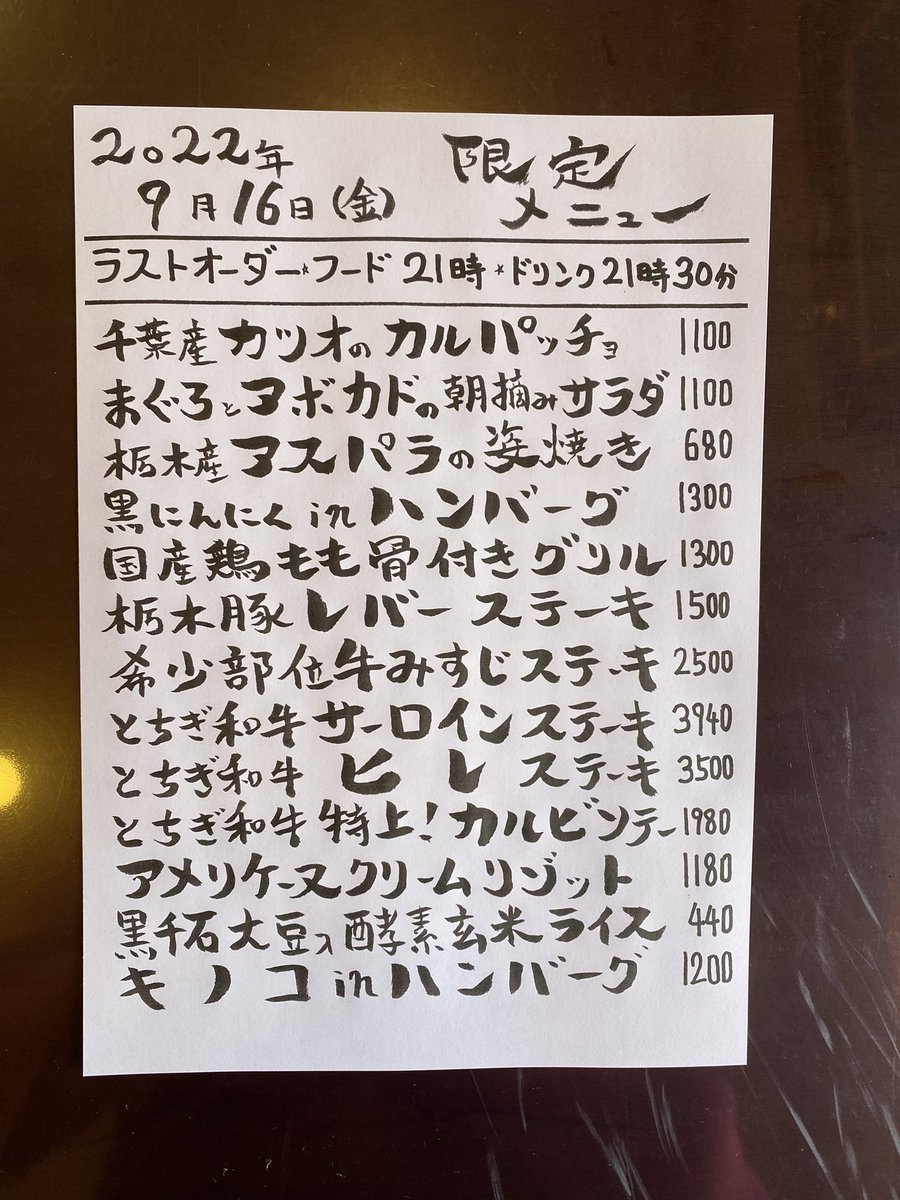 2022年
9月16日(金)
限定
メニュー
ラストオーダー*フード 21時*ドリンク21時30分
千葉産カツオのカルパッチョ 1100
まぐろとアボカドの朝摘みサラダ 1100
栃木産アスパラの姿焼き 680
黒にんにくinハンバーグ 1300
国産鶏もも骨付きグリル 1300
栃木豚レバーステーキ 1500
希少部位牛みすじステーキ 2500
とちぎ和牛サーロインステーキ 3940
とちぎ和牛ヒレステーキ 3500
とちぎ和牛特上!カルビソテー 1980
アメリケーヌクリームリゾット 1180
黒千石大豆入酵素玄米ライス 440
キノコinハンバーグ 1200